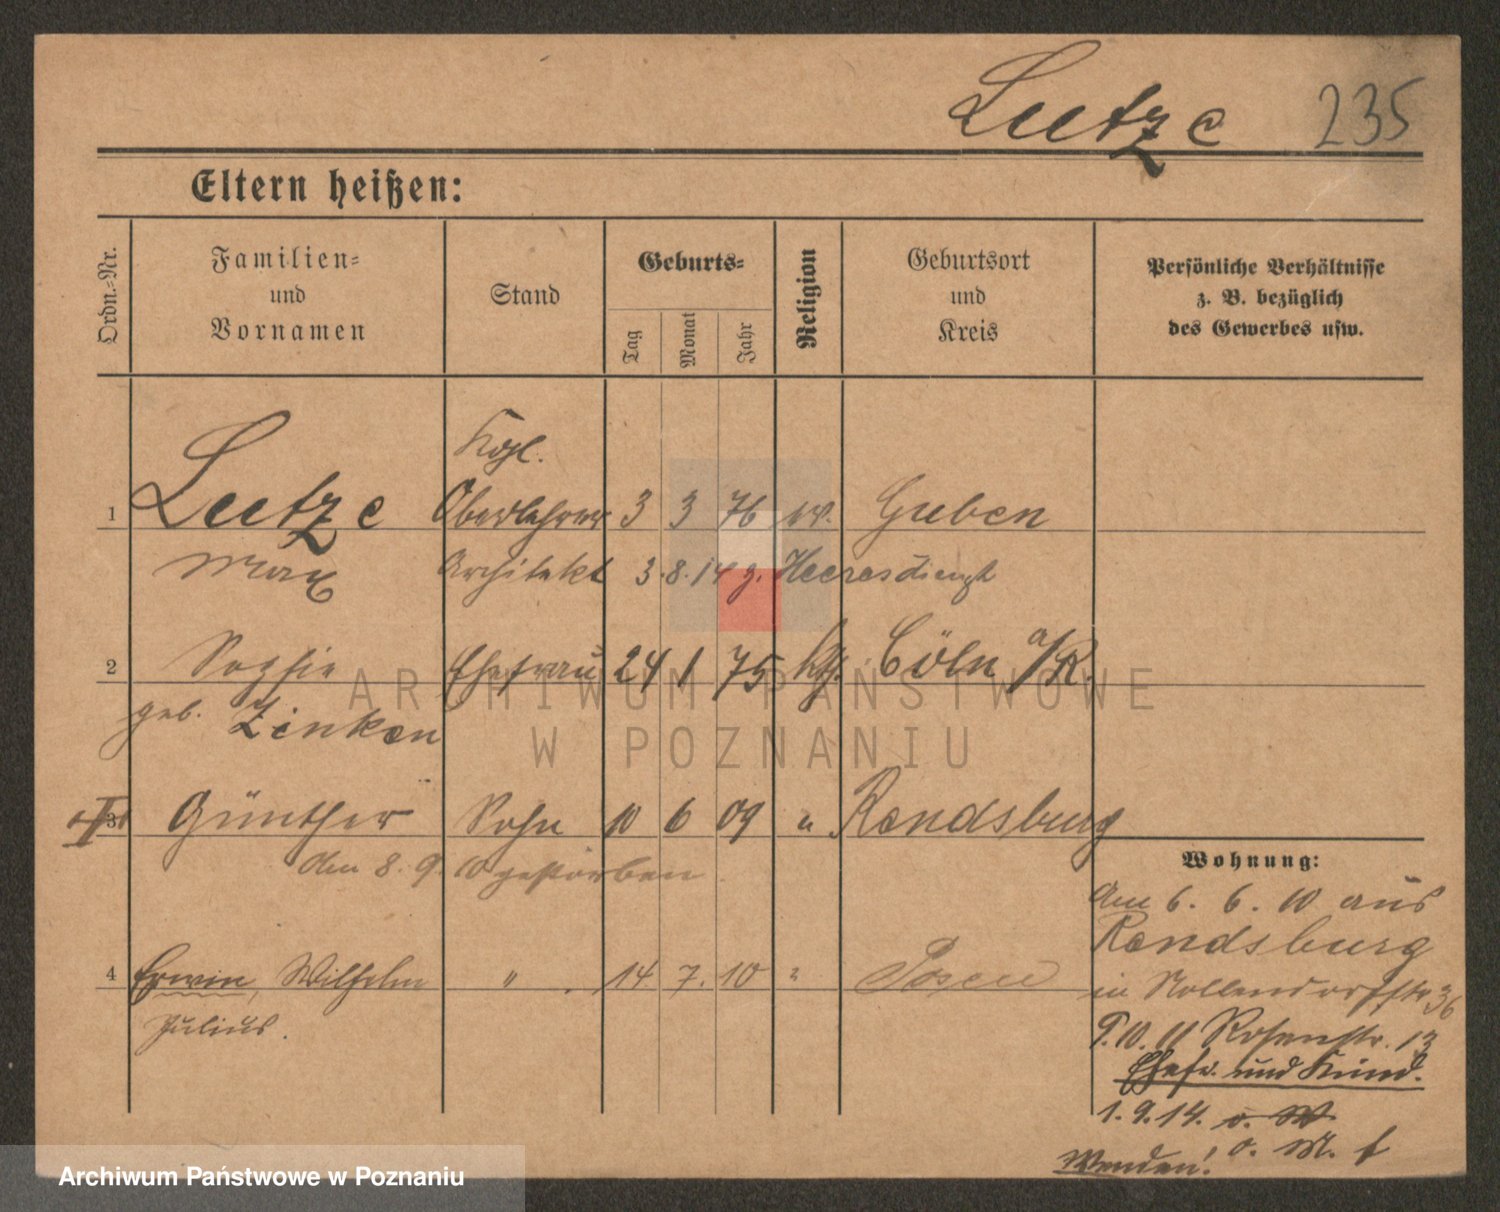 Lutze 235
Eltern heißen:
Ordn.-Nr.
Familien-
und
Vornamen
Stand
Geburts-
Tag
Monat
Jahr
Religion
Geburtsort
und
Kreis
Persönliche Verhältnisse
z. B. bezüglich
des Gewerbes usw.
Kgl.
1 Lutze Oberlehrer 3 3 76 ev. Guben
Max Architekt 3.8.14 z. Heeresdienst
2 Sophie Ehefrau 24 1 75 kth. Cöln a/R.
geb. Linken
3 Günther Sohn 10 6 09 " Rendsburg
den 8. 9. 10 gestorben
Wohnung:
Am 6. 6. 10 aus
Rendsburg
in Nollendorfstr 36
4 Erwin, Wilhelm " 14. 7. 10 " Posen
Julius.
9.10.11 Rosenstr. 13
Ehefr. und Kind.
1.9.14.
Wenden! o. M. f
ARCHIWUM PAŃSTWOWE
W POZNANIU
Archiwum Państwowe w Poznaniu